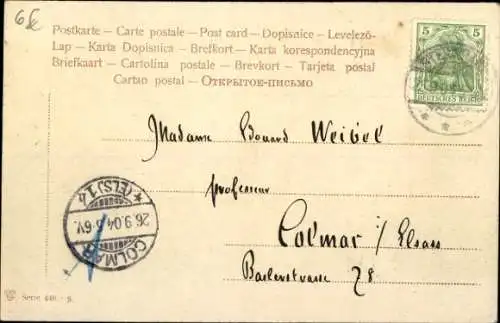 6k
Postkarte – Carte postale – Post card – Dopisnice – Levelező-
Lap – Karta Dopisnica – Brefkort – Karta korespondencyjna
Briefkaart – Cartolina postale – Brevkort – Tarjeta postal
Cartao postal – ОТКРЫТОЕ-ПИСЬМО
5 5
DEUTSCHES REICH
Madame Edouard Weibel
professeur
Colmar / Elsass
Baslerstrasse 78
COLMAR
26.9.04. 5-6V.
(ELS.) 1
Serie 440.